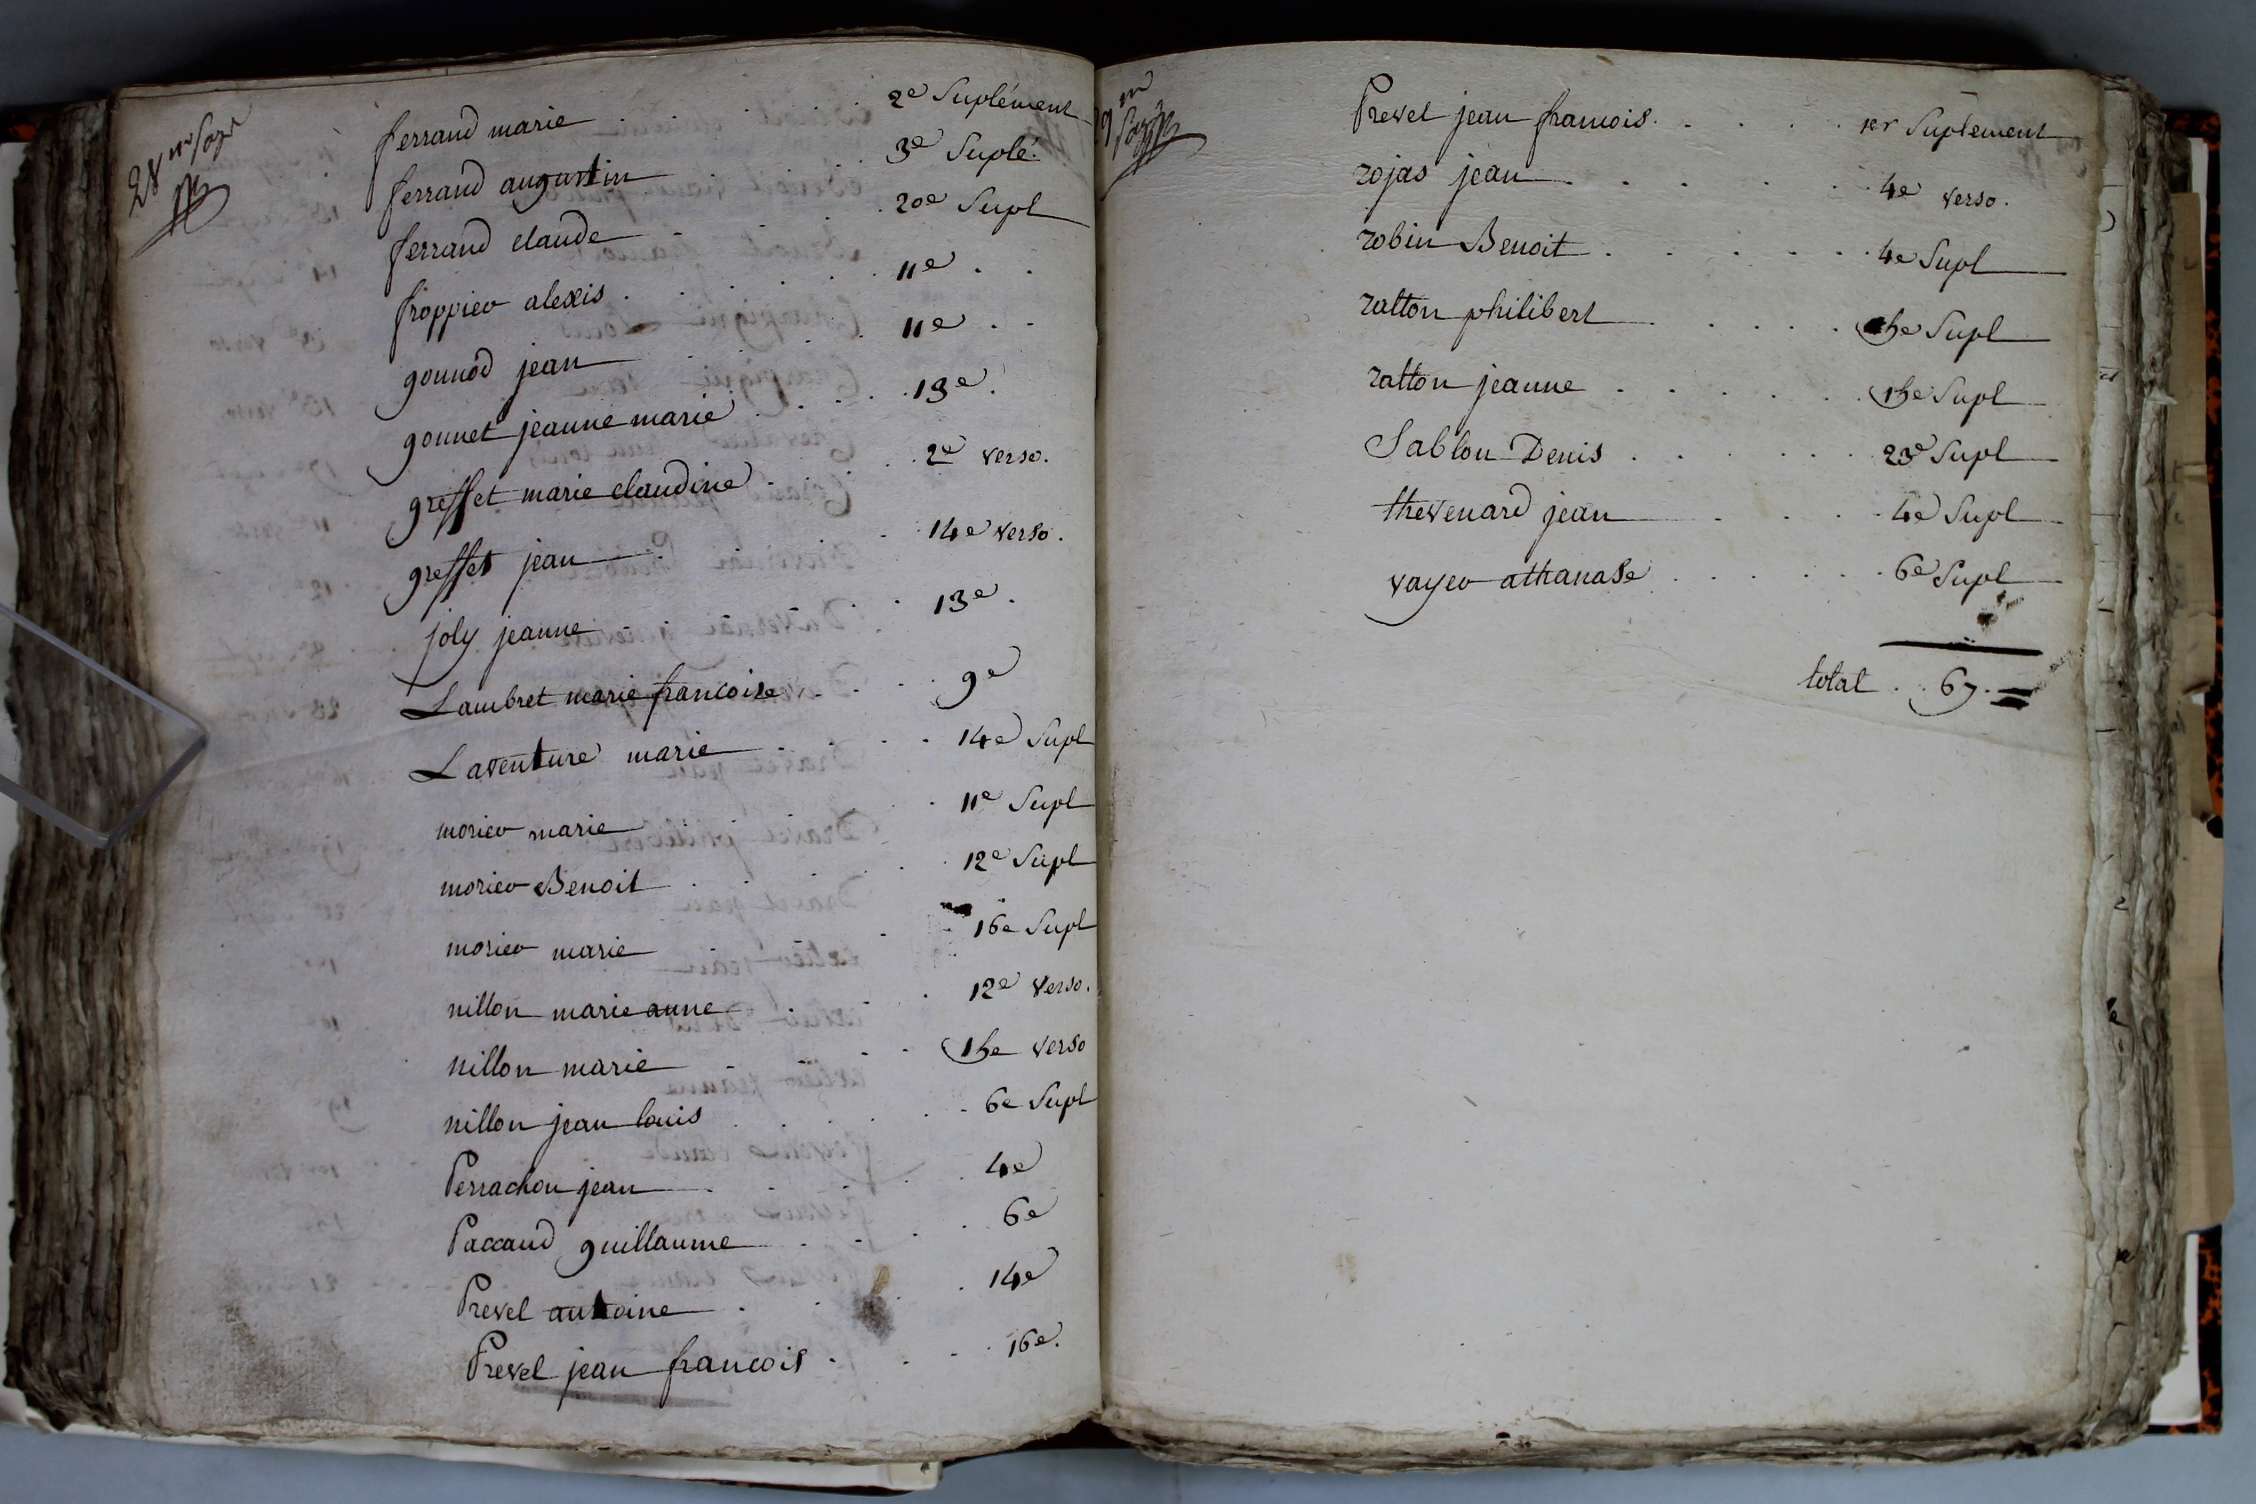 28me page
ferrand marie . . . . 2e Suplément
ferrand augustin . . . 3e Suplé.
ferrand claude . . . . 20e Supl
froppier alexis . . . . 11e . .
gonnod jean . . . . 11e . .
gonnet jeanne marie . . . . 13e .
greffet marie claudine . . . 2e verso.
greffet jean . . . . 14e verso.
joly jeanne . . . . 13e .
Lambret marie francoise . . . 9e
Laventure marie . . . . 14e Supl
morier marie . . . . 11e Supl
morier Benoit . . . . 12e Supl
morier marie . . . . 16e Supl
nillon marie anne . . . 12e verso.
nillon marie . . . . 15e verso
nillon jean louis . . . . 6e Supl
Perrachon jean . . . . 4e
Paccaud guillaume . . . 6e
Prevel antoine . . . . 14e
Prevel jean francois . . . . 16e.
Prevel jean francois . . . . 1er Suplement
rojas jean . . . . . 4e verso.
robin Benoit . . . . . 4e Supl
ratton philibert . . . . 5e Supl
ratton jeanne . . . . . 15e Supl
Sablon Denis . . . . . 23e Supl
thevenard jean . . . . 4e Supl
vayer athanase . . . . 6e Supl
total . . 67. =